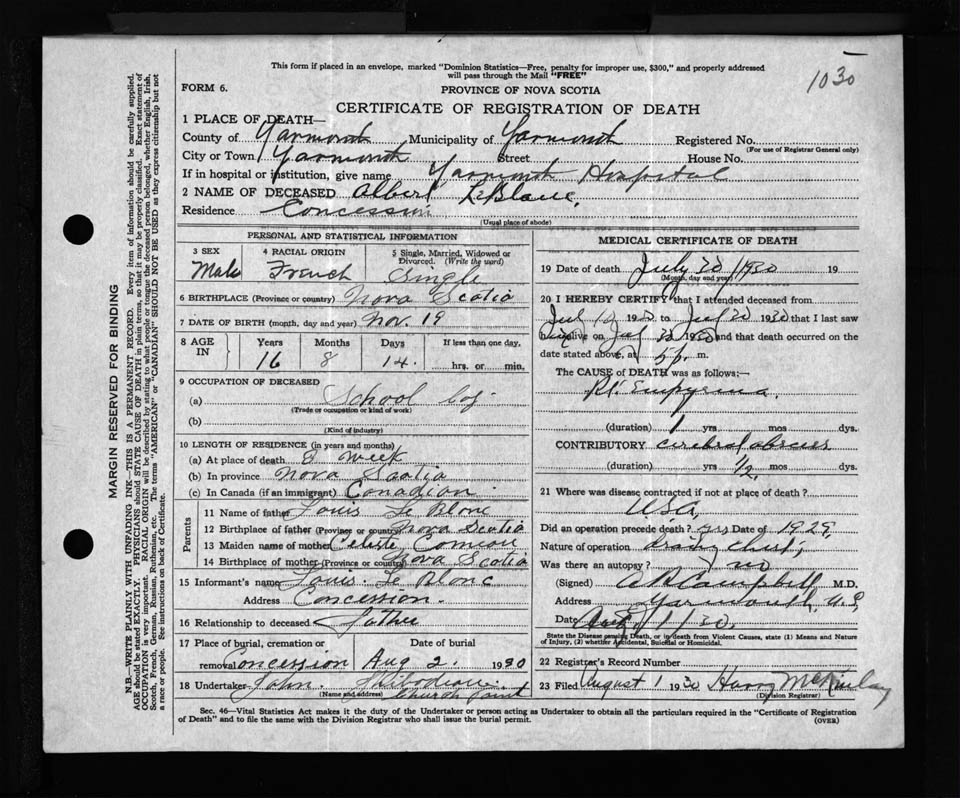 1030
This form if placed in an envelope, marked "Dominion Statistics—Free, penalty for improper use, $300," and properly addressed
will pass through the Mail "FREE"
FORM 6.
PROVINCE OF NOVA SCOTIA
CERTIFICATE OF REGISTRATION OF DEATH
1 PLACE OF DEATH—
County of Yarmouth Municipality of Yarmouth Registered No.
(For use of Registrar General only)
City or Town Yarmouth Street House No.
If in hospital or institution, give name Yarmouth Hospital
2 NAME OF DECEASED Albert LeBlanc
Residence Concession
(Usual place of abode)
PERSONAL AND STATISTICAL INFORMATION
3 SEX 4 RACIAL ORIGIN 5 Single, Married, Widowed or
Divorced. (Write the word)
Male French Single
6 BIRTHPLACE (Province or country) Nova Scotia
7 DATE OF BIRTH (month, day and year) Nov. 19
8 AGE IN Years Months Days If less than one day,
16 8 14. hrs. or min.
9 OCCUPATION OF DECEASED
(a) School boy
(Trade or occupation or kind of work)
(b)
(Kind of industry)
10 LENGTH OF RESIDENCE (in years and months)
(a) At place of death week
(b) In province Nova Scotia
(c) In Canada (if an immigrant) Canadian
Parents
11 Name of father Louis Le Blanc
12 Birthplace of father (Province or country) Nova Scotia
13 Maiden name of mother Celeste Comeau
14 Birthplace of mother (Province or country) Nova Scotia
15 Informant's name Louis Le Blanc
Address Concession.
16 Relationship to deceased father
17 Place of burial, cremation or Date of burial
removal Concession Aug 2. 1930
18 Undertaker John Thibodeau
(Name and address) Church Point
MEDICAL CERTIFICATE OF DEATH
19 Date of death July 30 1930 19
(Month, day and year)
20 I HEREBY CERTIFY that I attended deceased from
Jul 1930 to Jul 30 1930 that I last saw
alive on Jul 30 1930 and that death occurred on the
date stated above, at m.
The CAUSE of DEATH was as follows:—
Rt. Empyema
(duration) 1 yrs mos dys.
CONTRIBUTORY cerebral abscess
(duration) yrs 1/2 mos dys.
21 Where was disease contracted if not at place of death?
USA
Did an operation precede death? yes Date of 1929
Nature of operation chest
Was there an autopsy? no
(Signed) A R Campbell M.D.
Address Yarmouth, N.S
Date Aug 1/30.
State the Disease causing Death, or in death from Violent Causes, state (1) Means and Nature
of Injury, (2) whether Accidental, Suicidal or Homicidal.
22 Registrar's Record Number
23 Filed August 1 1930 Harry McKinlay
(Division Registrar)
Sec. 46—Vital Statistics Act makes it the duty of the Undertaker or person acting as Undertaker to obtain all the particulars required in the "Certificate of Registration
of Death" and to file the same with the Division Registrar who shall issue the burial permit.
(OVER)
MARGIN RESERVED FOR BINDING
N.B.—WRITE PLAINLY WITH UNFADING INK—THIS IS A PERMANENT RECORD. Every item of information should be carefully supplied.
AGE should be stated EXACTLY. PHYSICIANS should STATE CAUSE OF DEATH in plain terms, so that it may be properly classified. Exact statement of
OCCUPATION is very important. RACIAL ORIGIN will be described by stating to what people or tongue the deceased person belonged, whether English, Irish,
Scotch, French, German, Russian, Ruthenian, etc. The terms "AMERICAN" or "CANADIAN" SHOULD NOT BE USED as they express citizenship but not
a race or people. See instructions on back of Certificate.